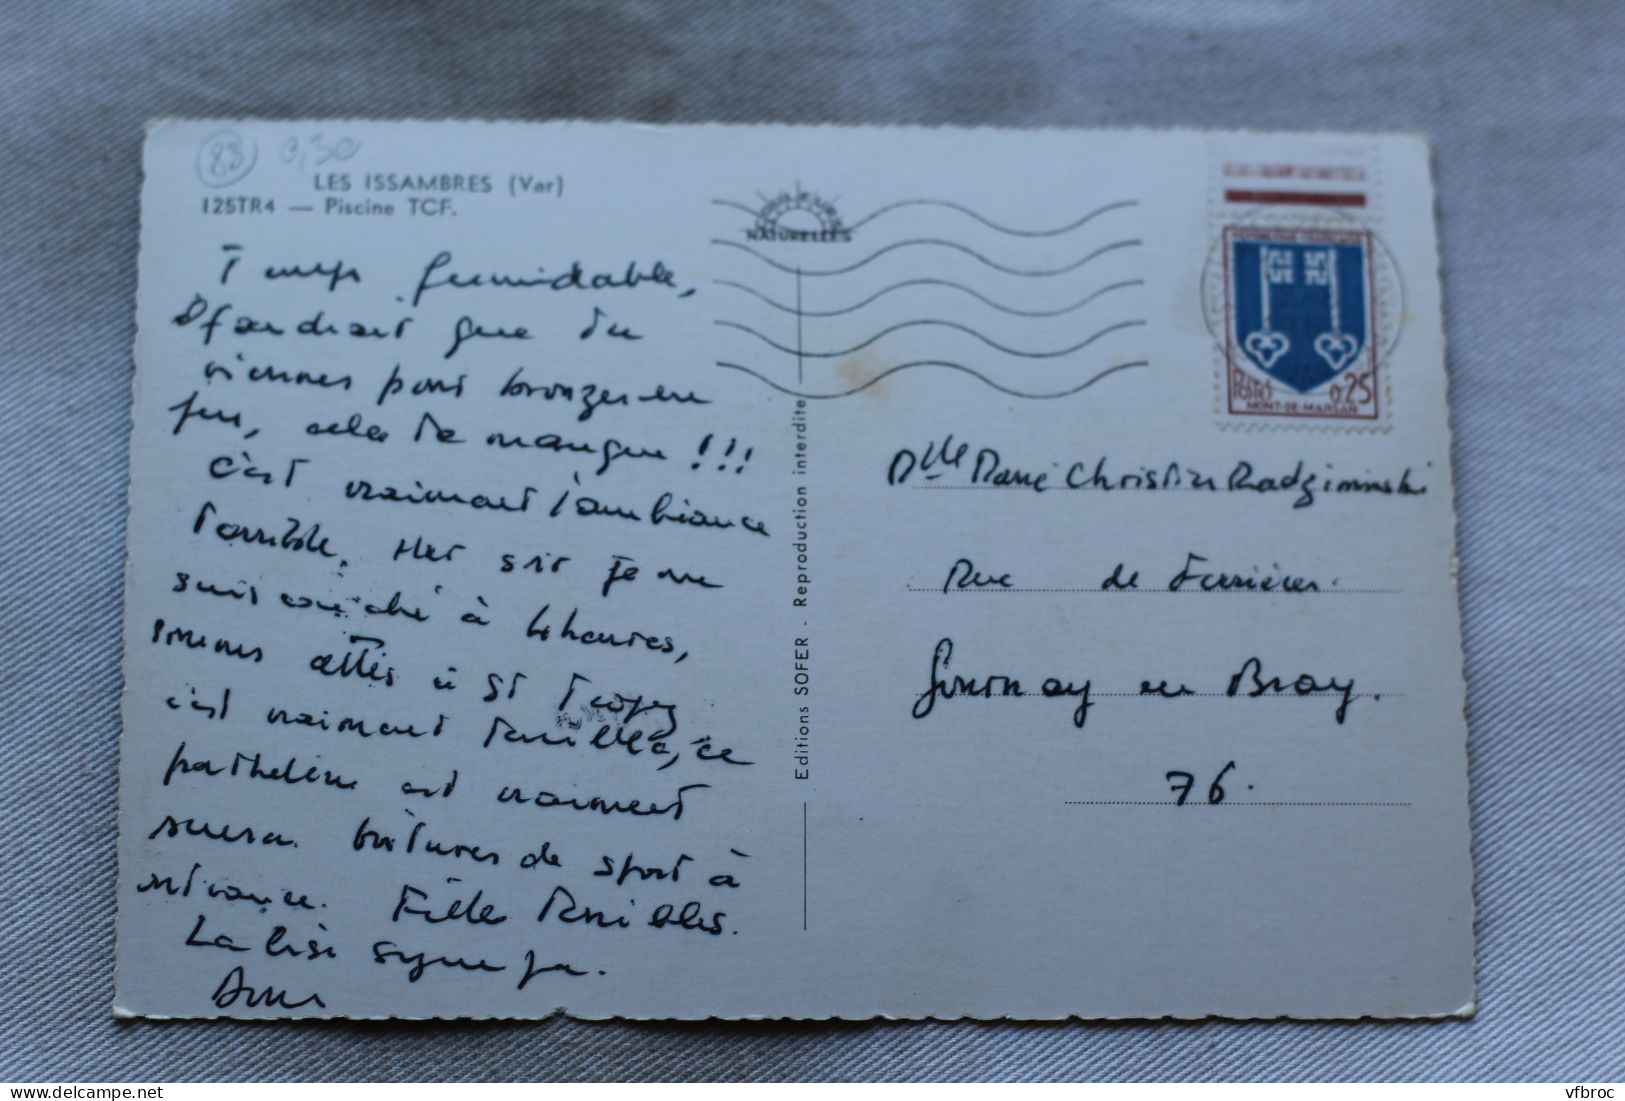 83 0,50
LES ISSAMBRES (Var)
125TR4 — Piscine TCF.
Temps formidable,
Il faudrait que tu
viennes pour bronzer un
peu, cela te manque !!!
c'est vraiment l'ambiance
terrible, Hier soir je me
suis couché à 4 heures,
nous allés à St Tropez
c'est vraiment terrible, ce
est vraiment
sensa. Voitures de sport à
outrance. Filles terribles.
La sympa.
NATURELLES
Editions SOFER - Reproduction interdite
REPUBLIQUE FRANÇAISE
Postes 0,25
MONT-DE-MARSAN
Dlle Marie Christine Radziminski
Rue de Ferrières.
Gournay en Bray.
76.
vfbroc